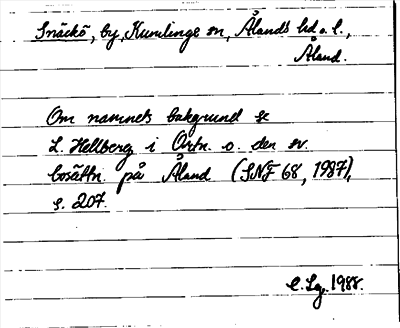 Snäckö, by, Kumlinge sn, Ålands hd o. l.,
Åland.
Om namnets bakgrund se
L. Hellberg i Ortn. o. den sv.
bosättn. på Åland (SNF 68, 1987),
s. 207.
C. Lg, 1988.